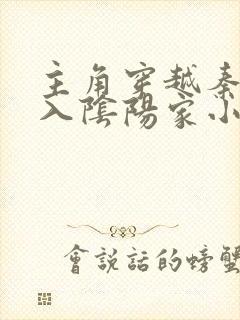 主角穿越秦
入陰陽家小
會説話的螃蟹